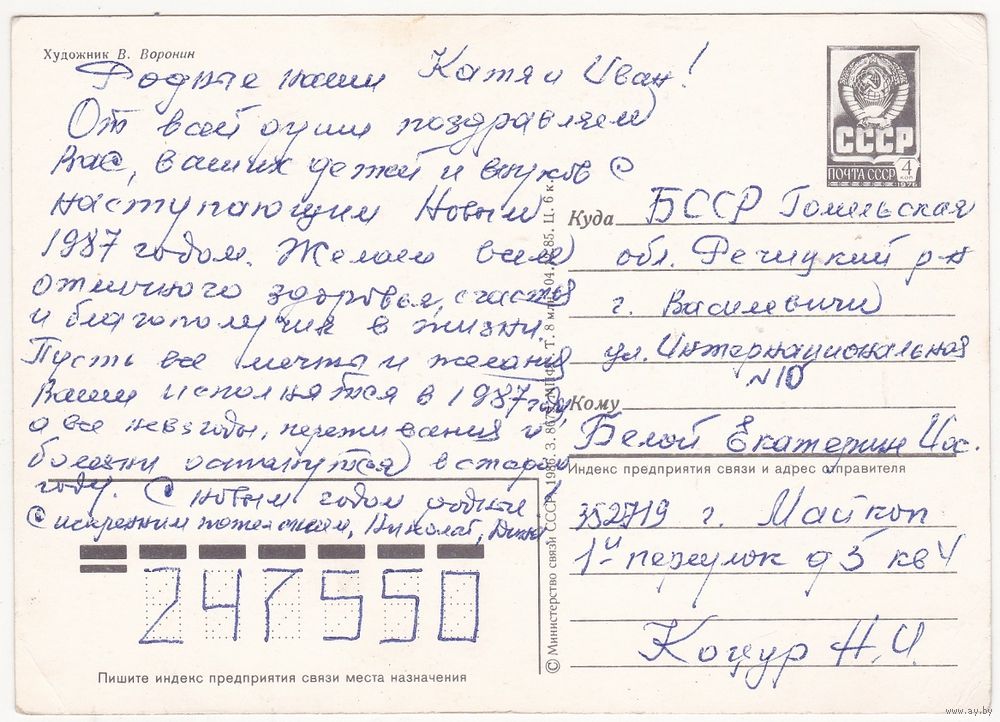 Художник В. Воронин
Родные наши Катя и Иван!
От всей души поздравляем
Вас, ваших детей и внуков с
наступающим Новым
1987 годом. Желаем всем
отличного здоровья, счастья
и благополучия в жизни.
Пусть все мечты и желания
Ваши исполнятся в 1987 году
а все невзгоды, переживания и
болезни останутся в старом
году. С новым годом родные!
С искренним пожеланием, Николай,
247550
Пишите индекс предприятия связи места назначения
© Министерство связи СССР. 1986. З. 8679. Т. 8 млн. 04. 85. Ц. 6 к.
СССР
ПОЧТА СССР
4 коп
1976
Куда БССР Гомельская
обл. Речицкий р-н
г. Василевичи
ул. Интернациональная
№10
Кому
Белой Екатерин Иос.
Индекс предприятия связи и адрес отправителя
352719 г. Майкоп
1й переулок д 5 кв 4
Коцур Н.И.
www.ay.by